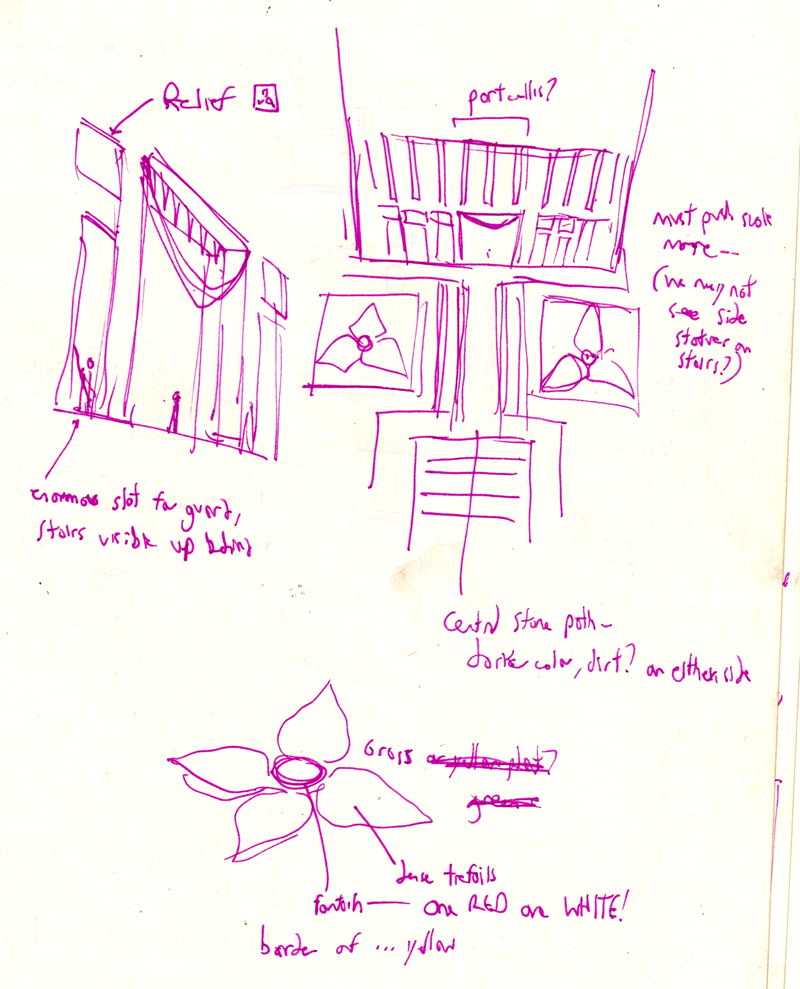 Relief
portcullis?
must push scale
more—
(we may not
see side
statues on
stairs?)
enormous slot for guard,
stairs visible up behind
Central stone path—
darker color, dirt? on either side
Grass
dense trefoils
fountain — one RED one WHITE!
border of ... yellow